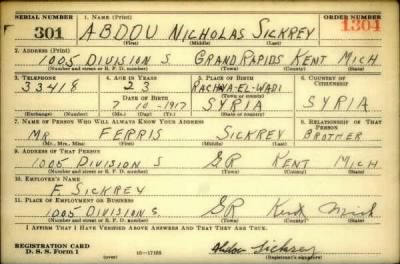 SERIAL NUMBER 1. NAME (Print) ORDER NUMBER
301 ABDOU NICHOLAS SICKREY 1304
(First) (Middle) (Last)
2. ADDRESS (Print)
1005 DIVISION S GRAND RAPIDS KENT MICH
(Number and street or R. F. D. number) (Town) (County) (State)
3. TELEPHONE 4. AGE IN YEARS 5. PLACE OF BIRTH 6. COUNTRY OF CITIZENSHIP
33418 23 RACHAYA-EL-WADI
DATE OF BIRTH (Town or county)
7 10 - 1917 SYRIA SYRIA
(Exchange) (Number) (Mo.) (Day) (Yr.) (State or country)
7. NAME OF PERSON WHO WILL ALWAYS KNOW YOUR ADDRESS 8. RELATIONSHIP OF THAT PERSON
MR FERRIS SICKREY BROTHER
(Mr., Mrs., Miss) (First) (Middle) (Last)
9. ADDRESS OF THAT PERSON
1005 DIVISION S GR KENT MICH
(Number and street or R. F. D. number) (Town) (County) (State)
10. EMPLOYER'S NAME
F. SICKREY
11. PLACE OF EMPLOYMENT OR BUSINESS
1005 DIVISION S. GR Kent Mich
(Number and street or R. F. D. number) (Town) (County) (State)
I AFFIRM THAT I HAVE VERIFIED ABOVE ANSWERS AND THAT THEY ARE TRUE.
REGISTRATION CARD
D. S. S. Form 1 (over) Abdou Sickrey
(Registrant's signature)